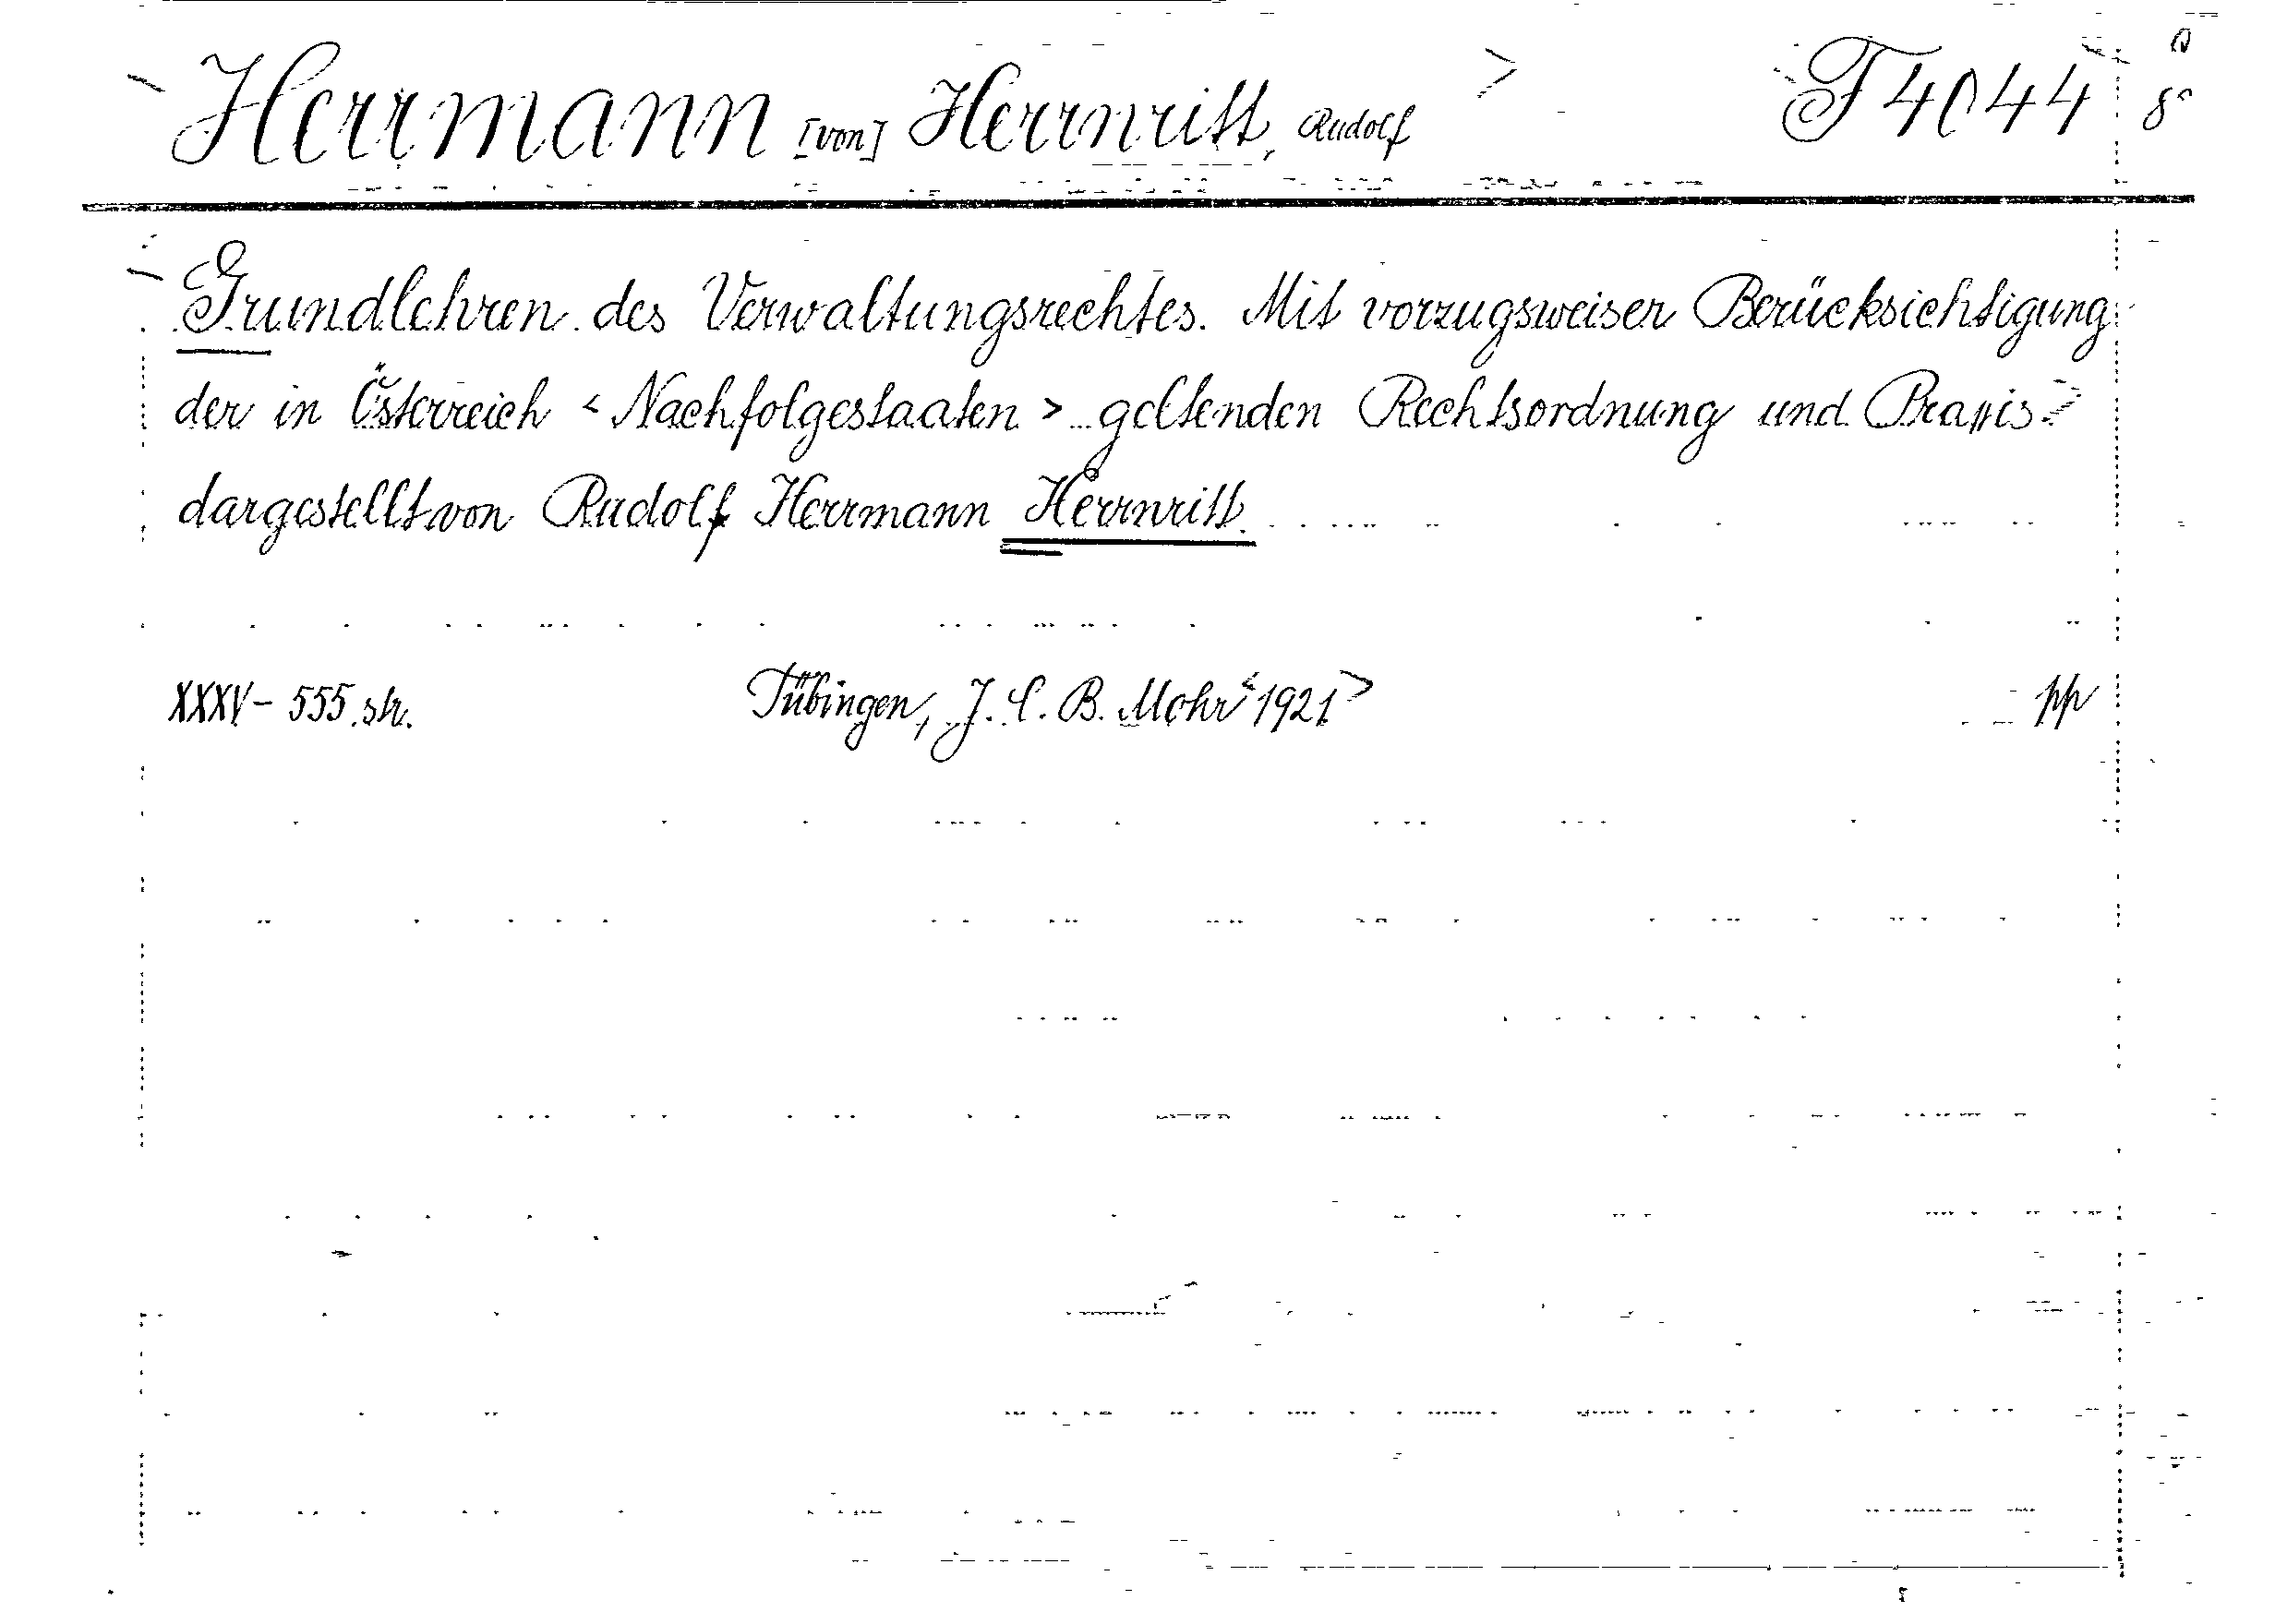 Herrmann [von] Herrnritt, Rudolf F 4044 8°
Grundlehren des Verwaltungsrechtes. Mit vorzugsweiser Berücksichtigung
der in Österreich < Nachfolgestaaten > geltenden Rechtsordnung und Praxis
dargestellt von Rudolf Herrmann Herrnritt.
XXXV - 555 str. Tübingen, J. C. B. Mohr <1921> pp